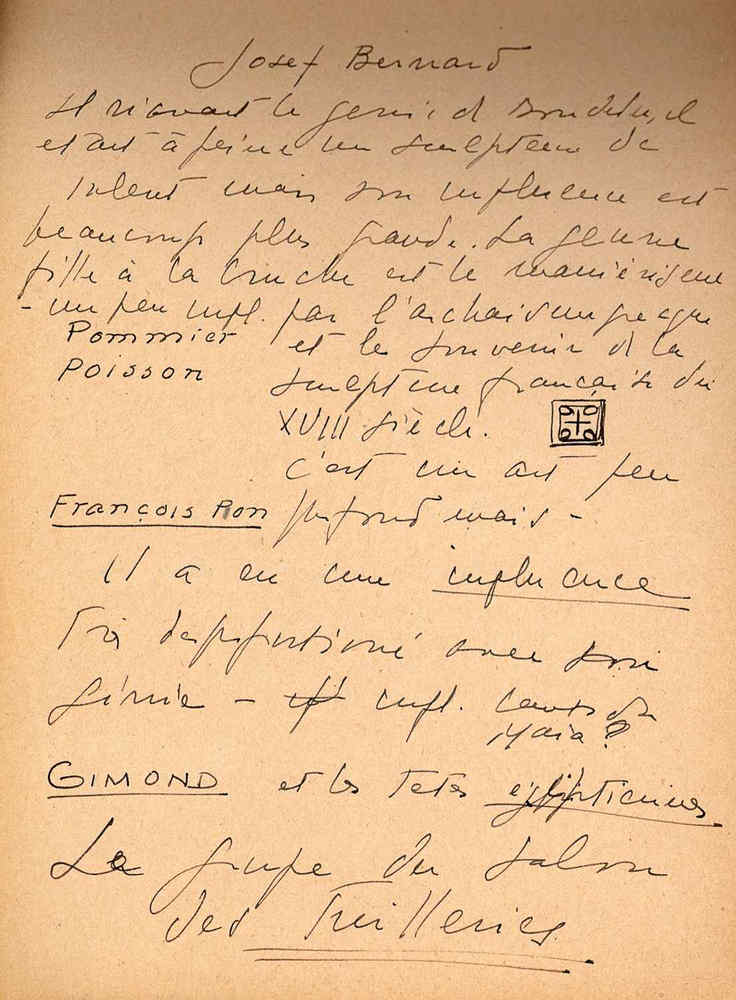 Josef Bernard
Il n'avait le génie de Bourdelle, il
etait à peine un sculpteur de
talent mais son influence est
beaucoup plus grande. La jeune
fille à la cruche est le maniérisme
- un peu infl. par l'archaïsme grecque
Pommier et le souvenir de la
Poisson sculpture française du
XVIII siècle.
C'est un art peu
François Pon profond mais -
Il a eu une influence
Très disproportioné avec son
Génie - infl.
Maia?
GIMOND et les Tetes egiptiennes.
Le groupe du salon
des Tuilleries